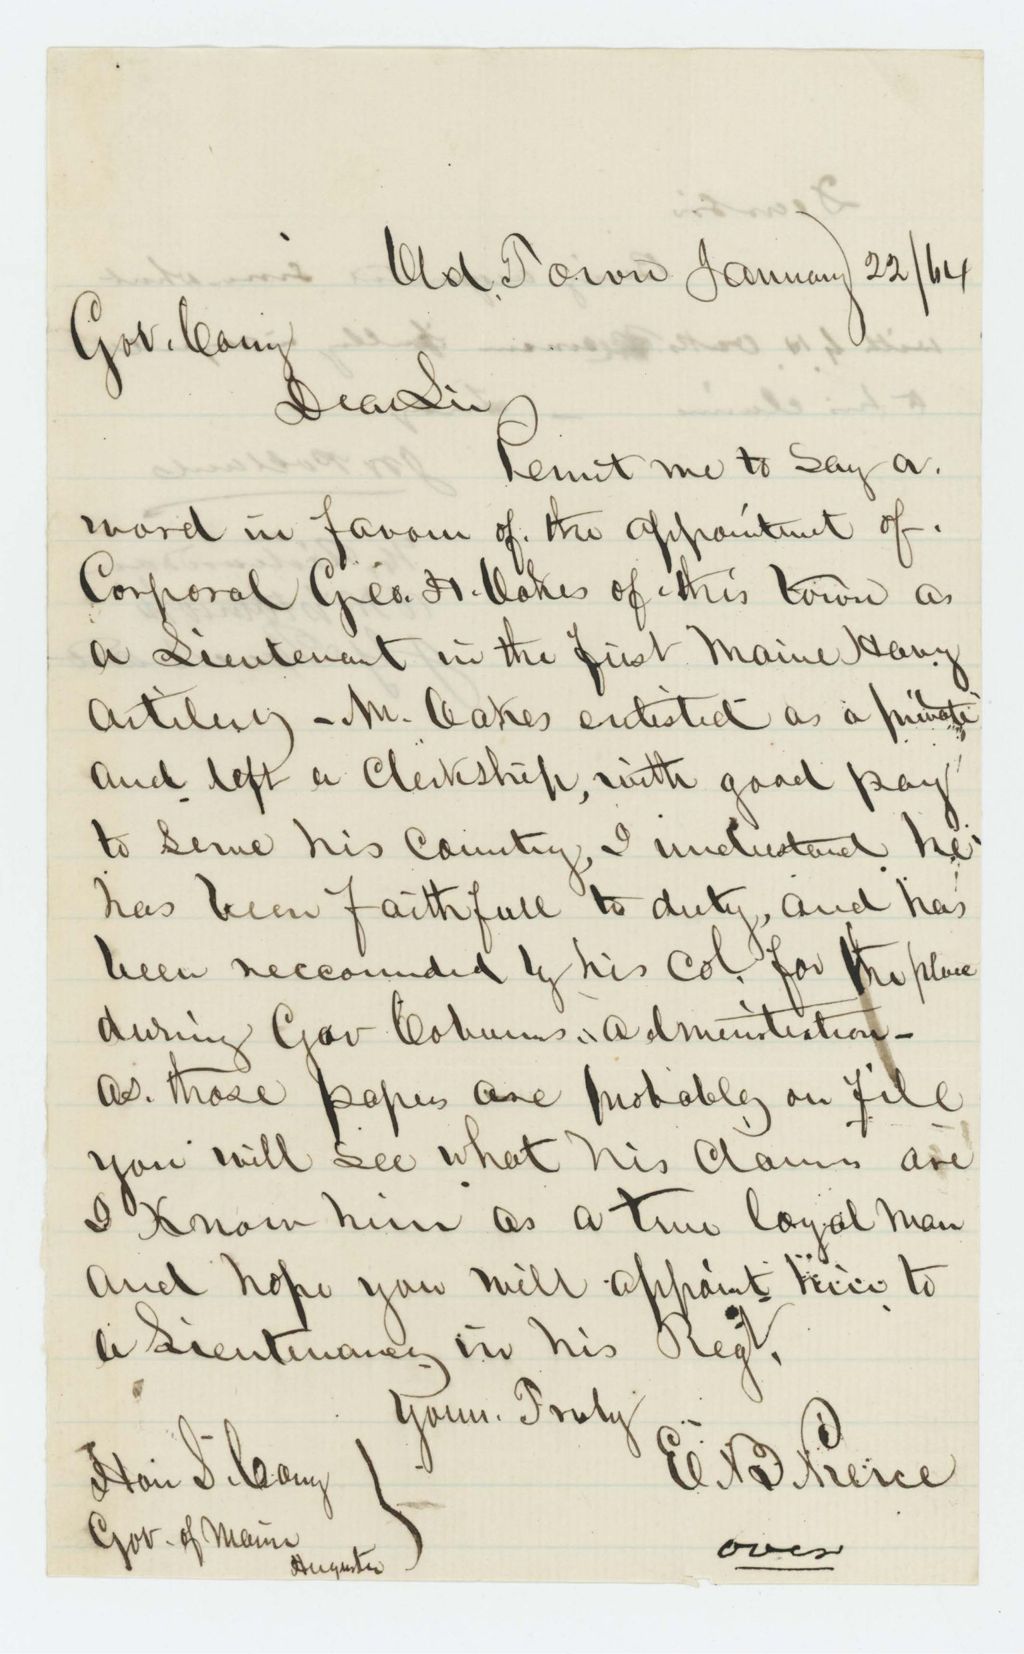 Old Town January 22/64
Gov. Cony
Dear Sir
Permit me to say a
word in favour of the appointment of
Corporal Geo. H. Oakes of this town as
a Lieutenant in the first Maine Heavy
Artillery - Mr. Oakes enlisted as a private
and left a Clerkship, with good pay
to serve his Country, I understand he
has been faithfull to duty, and has
been reccomended by his Col. for the place
during Gov Coburns administration -
as those papers are probably on file
you will see what his claims are
I Know him as a true loyal man
and hope you will appoint him to
a Lieutenancy in his Regt.
Yours Truly
E N Pierce
Hon S. Cony
Gov. of Maine
Augusta
over